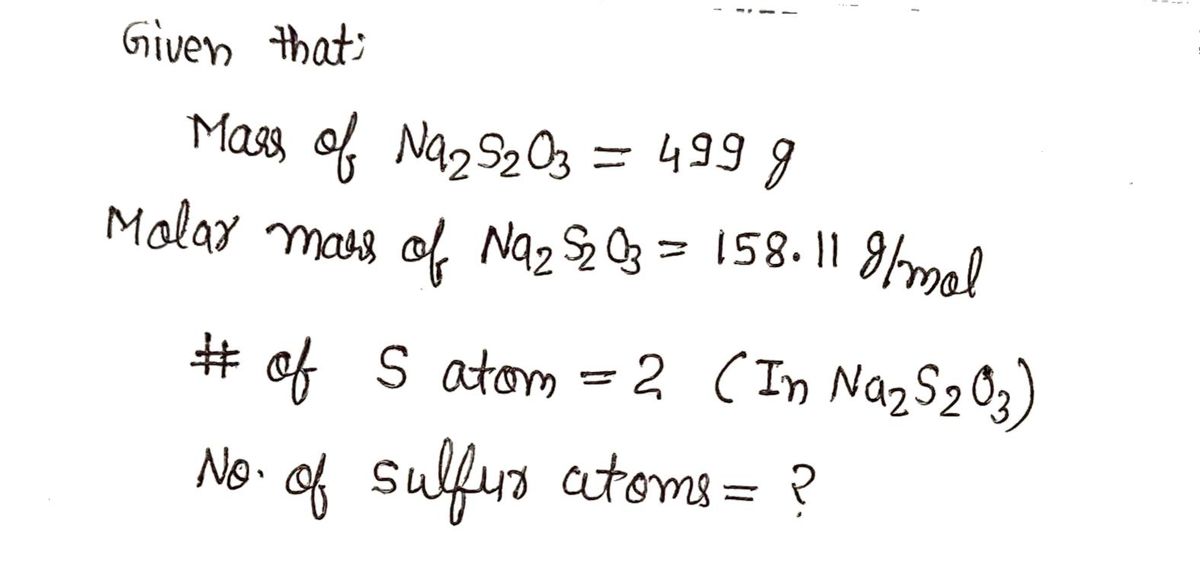 Given that;
Mass of Na2S2O3 = 499 g
Molar mass of Na2S2O3 = 158.11 g/mol
# of S atom = 2 (In Na2S2O3)
No. of sulfur atoms = ?